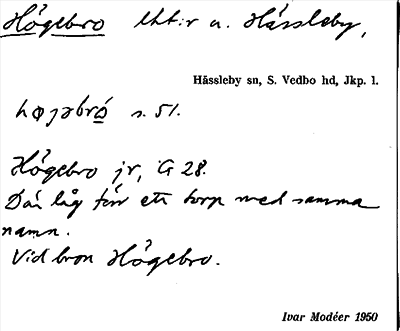 Högebro lht:r u. Hässleby,
Hässleby sn, S. Vedbo hd, Jkp. l.
högəbró s. 51.
Högebro jr, G 28.
Där låg förr ett torp med samma
namn.
Vid bron Högebro.
Ivar Modéer 1950